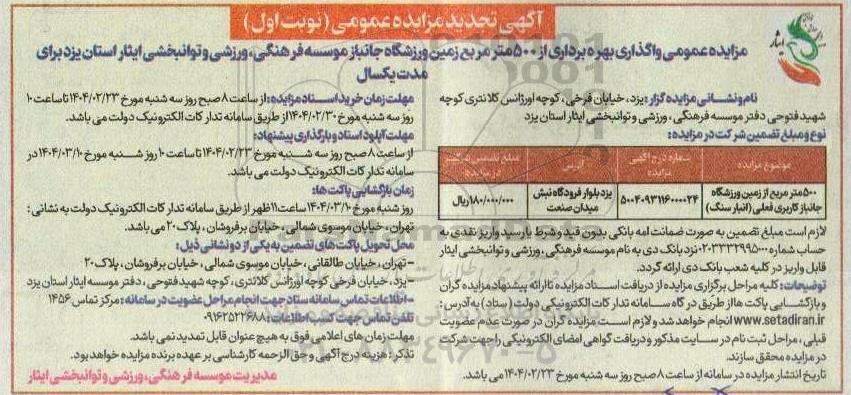 آگهی تجدید مزایده عمومی (نوبت اول)
ایثار
مزایده عمومی واگذاری بهره برداری از ۵۰۰متر مربع زمین ورزشگاه جانباز موسسه فرهنگی، ورزشی و توانبخشی ایثار استان یزد برای
مدت یکسال
نام و نشانی مزایده گزار : یزد، خیابان فرخی ، کوچه اورژانس کلانتری کوچه
شهید فتوحی دفتر موسسه فرهنگی ، ورزشی و توانبخشی ایثار استان یزد
نوع و مبلغ تضمین شرکت در مزایده:
موضوع مزایده
شماره درج آگهی مزایده
آدرس
مبلغ تضمین شرکت در مزایده
۵۰۰متر مربع از زمین ورزشگاه جانباز کاربری فعلی (انبار سنگ)
۵۰۰۴۰۹۳۱۱۶۰۰۰۰۲۴
یزد بلوار فرودگاه نبش میدان صنعت
۱۸۰/۰۰۰/۰۰۰ریال
لازم است مبلغ تضمین به صورت ضمانت نامه بانکی بدون قید و شرط یا رسید واریز نقدی به
حساب شماره ۰۲۰۳۳۳۲۹۹۵۰۰۰نزد بانک دی به نام موسسه فرهنگی ، ورزشی و توانبخشی ایثار
قابل واریز در کلیه شعب بانک دی ارائه گردد.
توضیحات: کلیه مراحل برگزاری مزایده از دریافت اسناد مزایده تا ارائه پیشنهاد مزایده گران
و بازگشایی پاکت ها از طریق درگاه سامانه تدارکات الکترونیکی دولت (ستاد) به آدرس :
www.setadiran.ir انجام خواهد شد و لازم است مزایده گران در صورت عدم عضویت
قبلی ، مراحل ثبت نام در سایت مذکور و دریافت گواهی امضای الکترونیکی را جهت شرکت
در مزایده محقق سازند.
تاریخ انتشار مزایده در سامانه از ساعت ۸صبح روز سه شنبه مورخ ۱۴۰۴/۰۲/۲۳ می باشد.
مهلت زمان خرید اسناد مزایده: از ساعت ۸ صبح روز سه شنبه مورخ ۱۴۰۴/۰۲/۲۳ تا ساعت ۱۰
روز سه شنبه مورخ ۱۴۰۴/۰۲/۳۰از طریق سامانه تدارکات الکترونیک دولت می باشد.
مهلت آپلود اسناد و بارگذاری پیشنهاد:
از ساعت ۸ صبح روز سه شنبه مورخ ۱۴۰۴/۰۲/۲۳ تا ساعت ۱۰ روز شنبه مورخ ۱۴۰۴/۰۳/۱۰ در
سامانه تدارکات الکترونیک دولت می باشد.
زمان بازگشایی پاکت ها:
روز شنبه مورخ ۱۴۰۴/۰۳/۱۰ ساعت ۱۱ظهر از طریق سامانه تدارکات الکترونیک دولت به نشانی :
تهران ، خیابان موسوی شمالی ، خیابان برفروشان ، پلاک ۲۰ می باشد.
محل تحویل پاکت های تضمین به یکی از دو نشانی ذیل:
- تهران ، خیابان طالقانی ، خیابان موسوی شمالی ، خیابان برفروشان ، پلاک ۲۰
- یزد، خیابان فرخی کوچه اورژانس کلانتری ، کوچه شهید فتوحی ، دفتر موسسه ایثار استان یزد
- اطلاعات تماس سامانه ستاد جهت انجام مراحل عضویت در سامانه : مرکز تماس ۱۴۵۶
تلفن تماس جهت کسب اطلاعات : ۰۹۱۶۲۵۲۲۶۸۸
مهلت زمان های اعلامی فوق به هیچ عنوان قابل تمدید نمی باشد.
تذکر : هزینه درج آگهی و حق الزحمه کارشناسی بر عهده برنده مزایده خواهد بود.
مدیریت موسسه فرهنگی ، ورزشی و توانبخشی ایثار